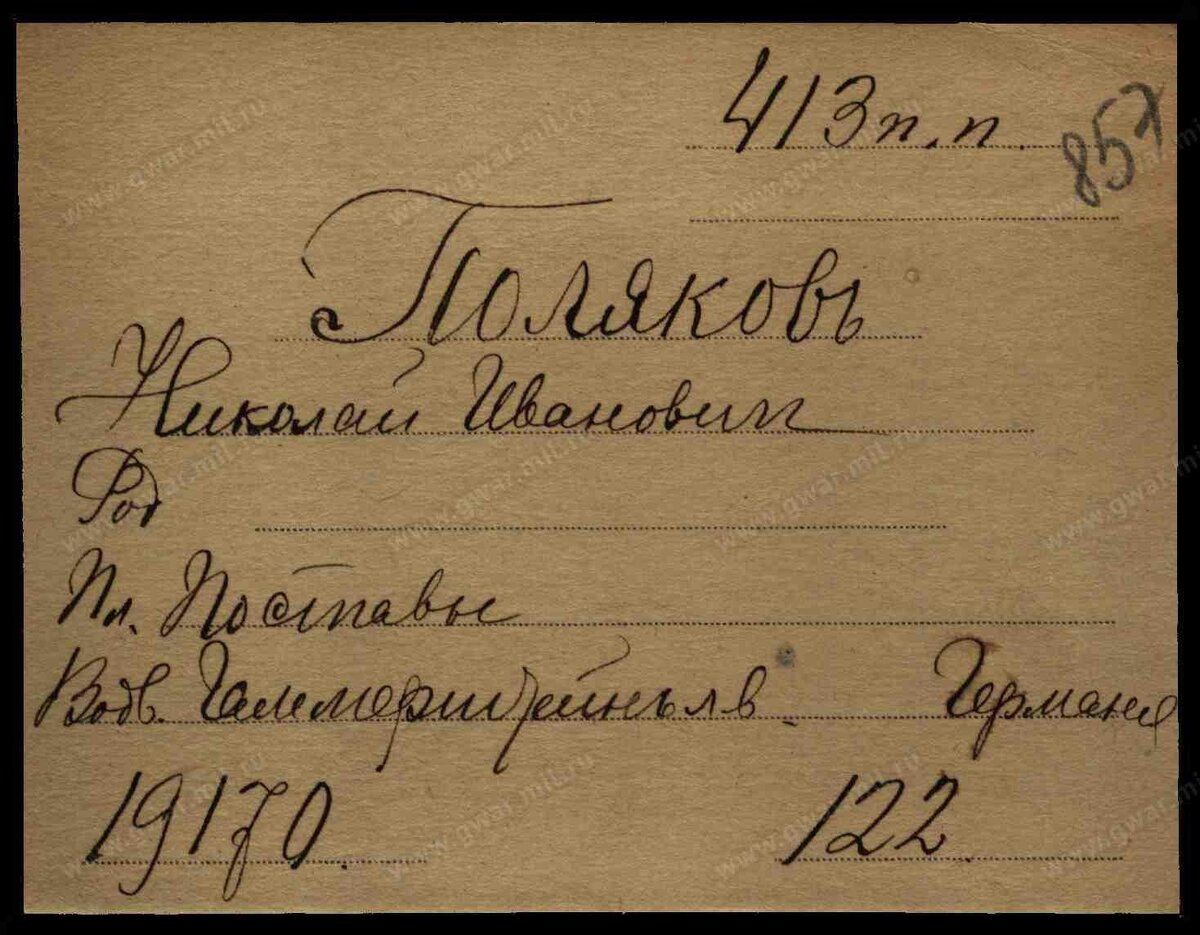 413 п. п.
857
Поляковъ
Николай Иванович
Род
Пл. Поставы
Водв. Гаммерштейнъ лв. Германія
19170. 122.
www.gwar.mil.ru